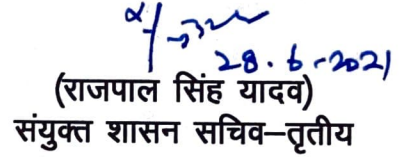 28.6-2021
(राजपाल सिंह यादव)
संयुक्त शासन सचिव–तृतीय